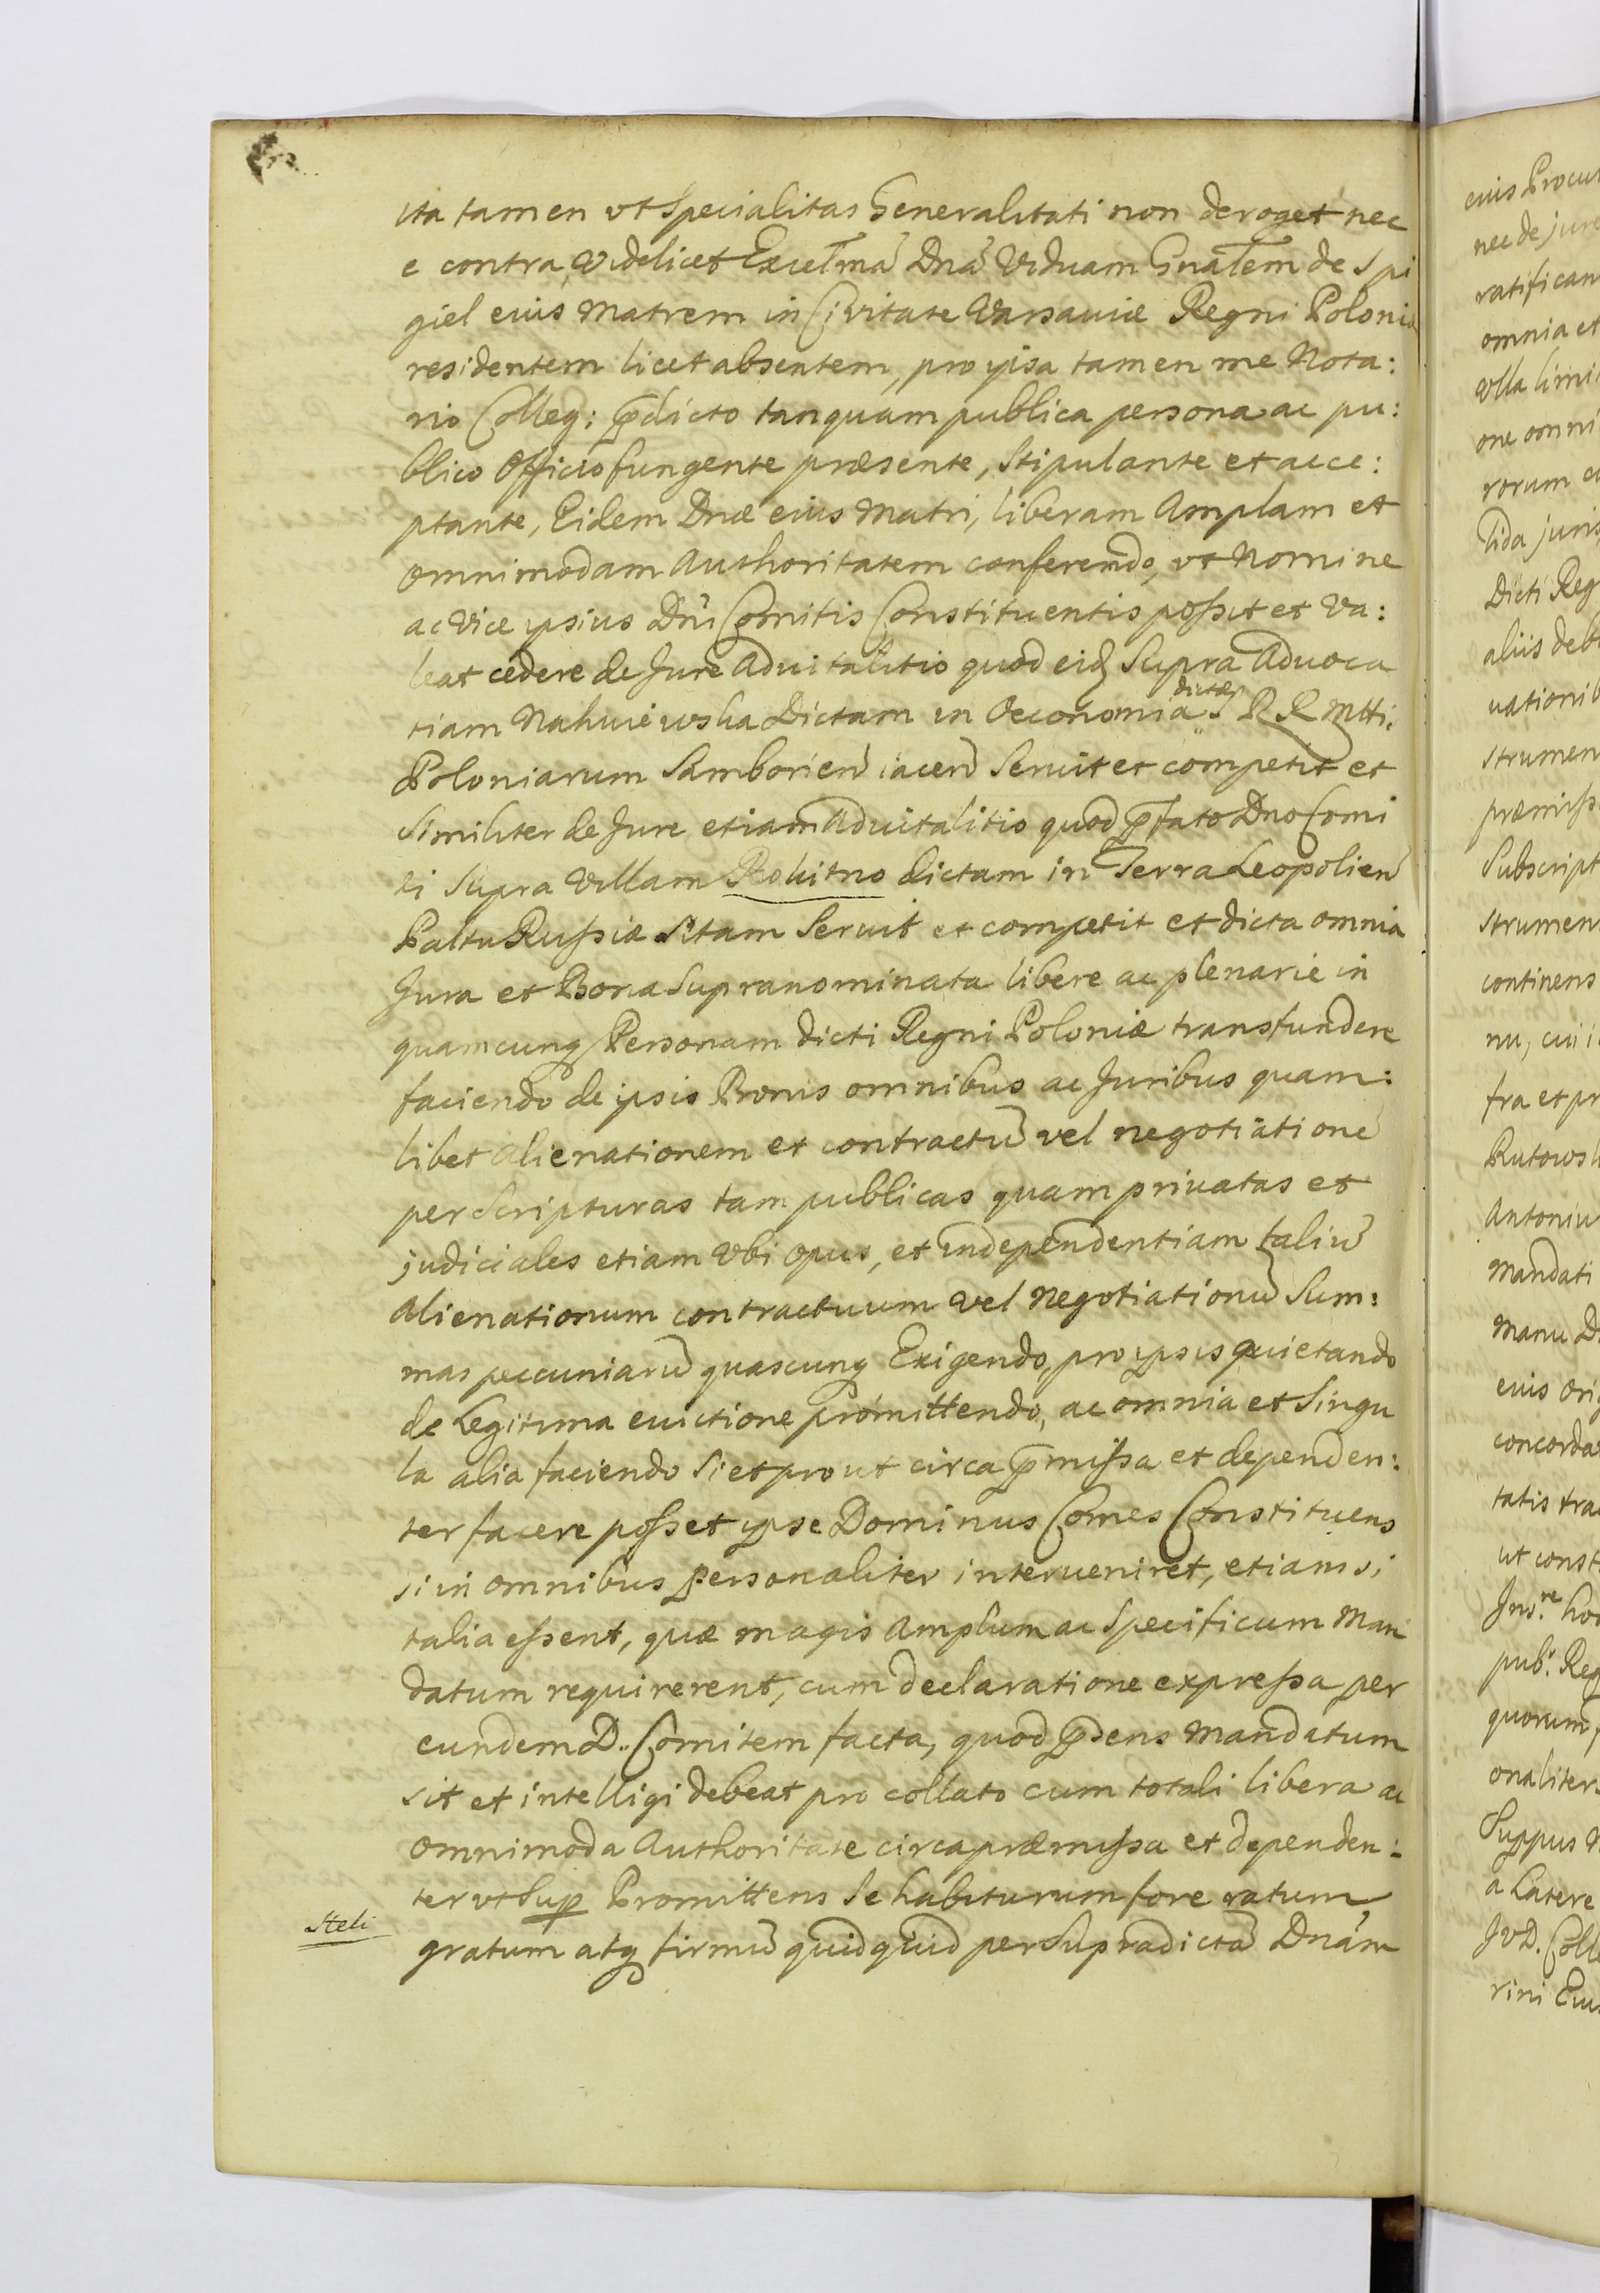 ita tamen vt Specialitas Generalitati non deroget nec
e contra, Videlicet Excelmã Dnã Viduam Gnalem de Spi
giel eius Matrem in Civitate Varsaviæ Regni Poloniæ
residentem licet absentem, pro ipsa tamen me Nota:
rio Colleg: pdicto tanquam publica persona ac pu:
blico Officio fungente præsente, Stipulante et acce:
ptante, Eidem Dnæ eius Matri, liberam Amplam et
omnimodam Authoritatem conferendo, vt Nomine
ac Vice ipsius Dni Comitis Constituentis possit et Va:
leat cedere de Jure Aduitalitio quod eid Supra Aduoca
tiam Dictam in Oeconomia dictæ R R Mtti.
Poloniarum Samborien iacen Seruit et competit et
Similiter de Jure etiam Aduitalitio quod pfato Dno Comi
ti Supra Villam Rokitno dictam in Terra Leopolien
Paltu Russiæ Sitam Seruit et competit et dicta omnia
Jura et Bona Supranominata libere ac plenarie in
quamcunq Personam dicti Regni Poloniæ transfundere
faciendo de ipsis Bonis omnibus ac Juribus quam:
libet Alienationem et contractũ vel negotiationẽ
per Scripturas tam publicas quam priuatas et
judiciales etiam Vbi opus, et independentiam taliũ
Alienationum contractuum vel Negotiationũ Sum:
mas peccuniarũ quascunq Exigendo, pro ipsis quietando
de Legitima euictione promittendo, ac omnia et Singu
la alia faciendo Si et prout circa pmissa et dependen:
ter facere posset ipse Dominus Comes Constituens
si in omnibus personaliter interueniret, etiam si
talia essent, quæ magis Amplum ac Specificum Man
datum requirerent, cum declaratione expressa per
eundem D. Comitem facta, quod psens Mandatum
sit et intelligi debeat pro collato cum totali libera ac
omnimoda Authoritate circa præmissa et dependen:
ter vt Sup Promittens Se habiturum fore ratum,
Steli
gratum atq firmũ quidquid per Supradictã Dnãm
eius Procu
nec de jure
ratifican
omnia et
Vlla limi
one omni
rorum
lida juris
Dicti Reg
aliis deb
uationib
strumen
præmiss
Subscript
strumen
continens
nu, cui i
fra et pr
Rutowsk
Antoniu
Mandati
Manu D
eius Orig
concorda
tatis tra
ut const
Jns.re hoc
pub: Reg
quorum
onaliter
Suppus
a Latere
JVD. Coll
rini Eius